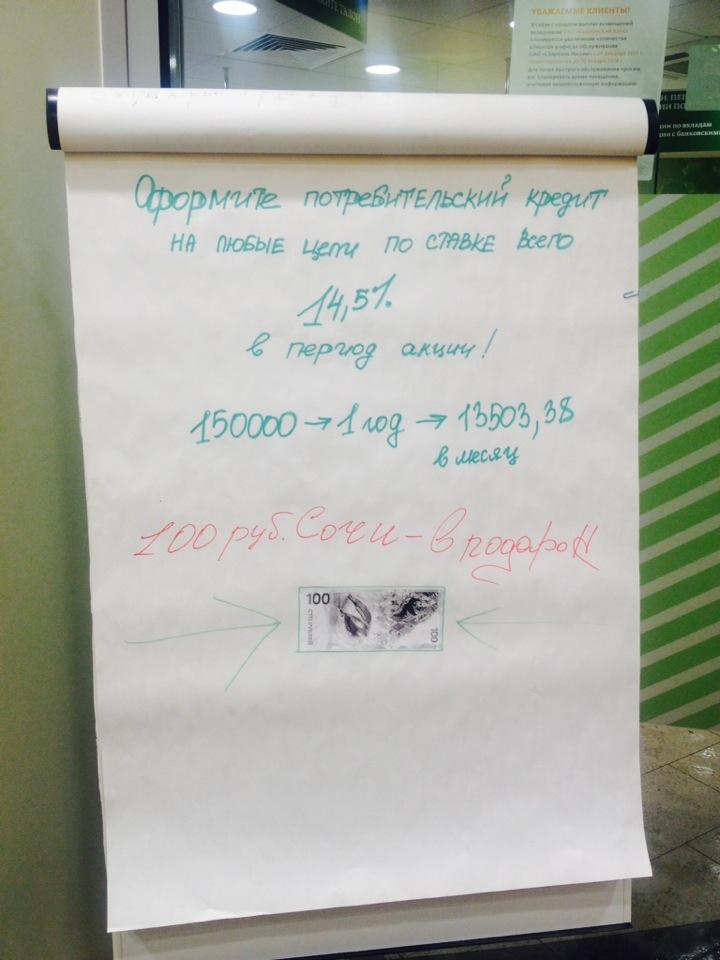 УВАЖАЕМЫЕ КЛИЕНТЫ!
Оформите потребительский кредит
на любые цели по ставке всего
14,5%
в период акции!
150000 → 1 год → 13503,38
в месяц
100 руб. Сочи - в подарок
100
СТО РУБЛЕЙ
100